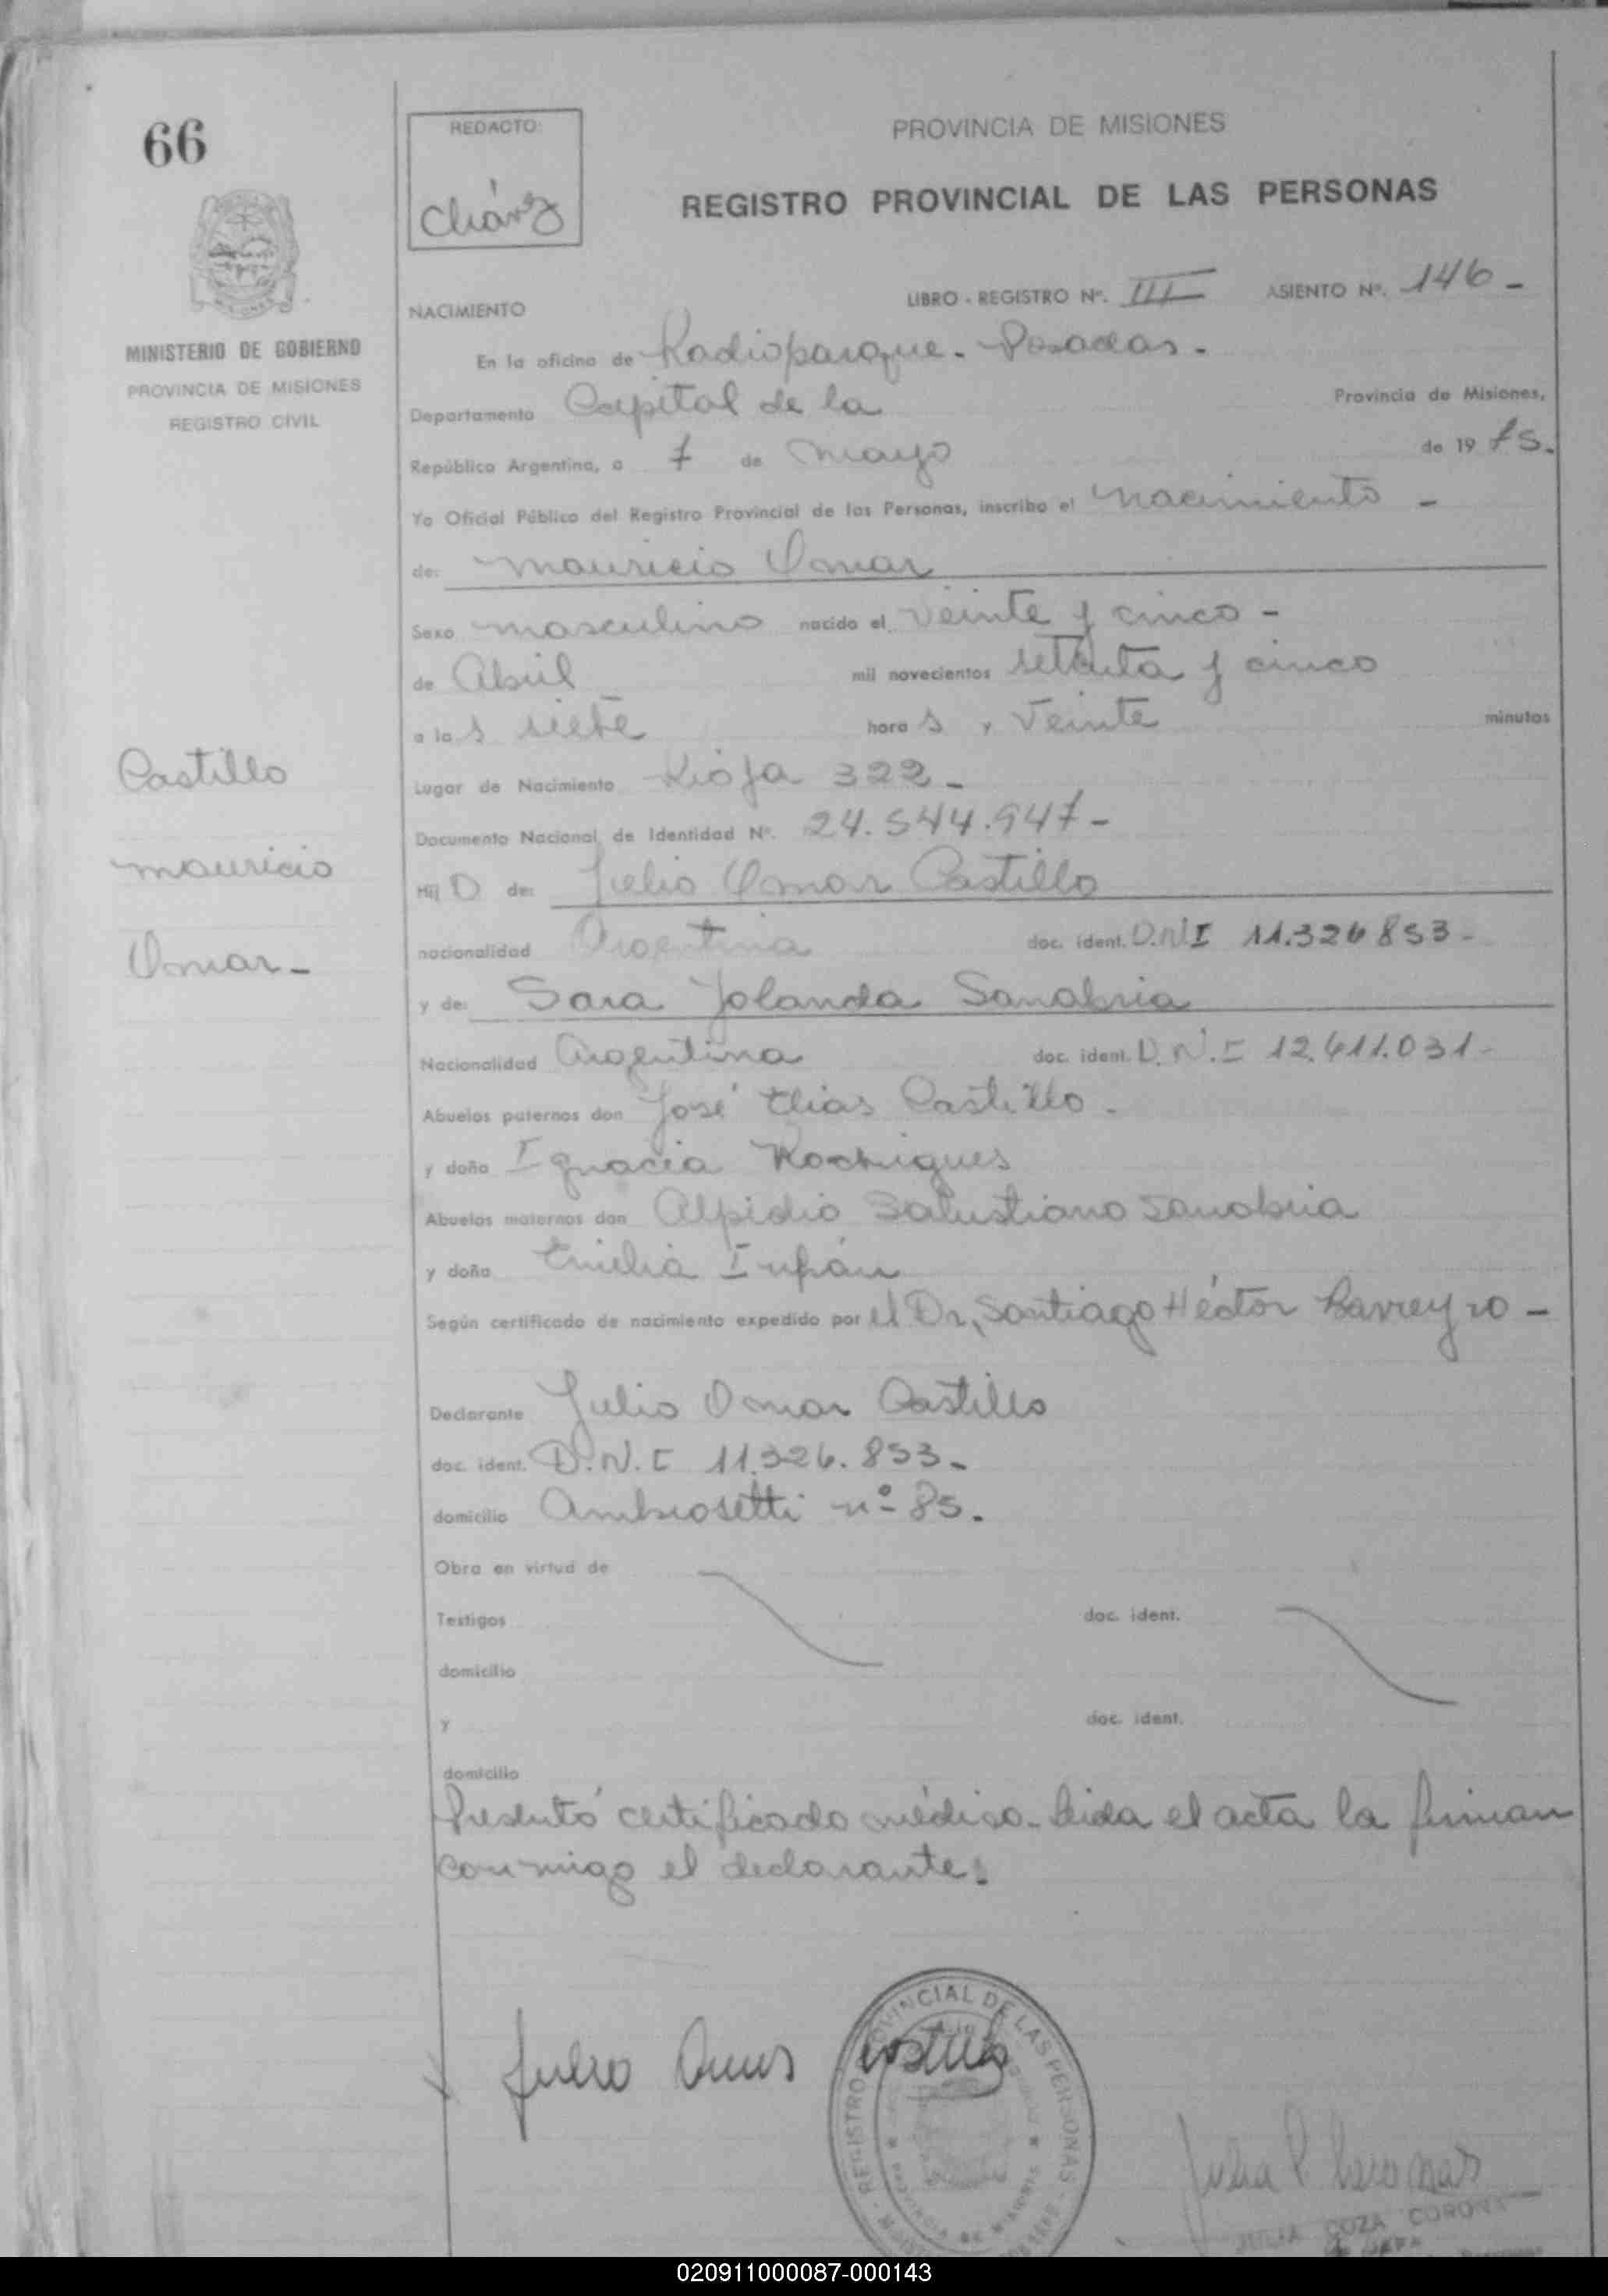 66
REDACTO:
Chávez
PROVINCIA DE MISIONES
REGISTRO PROVINCIAL DE LAS PERSONAS
MINISTERIO DE GOBIERNO
PROVINCIA DE MISIONES
REGISTRO CIVIL
NACIMIENTO
LIBRO - REGISTRO Nº. III ASIENTO Nº. 146 -
En la oficina de Radioparque - Posadas -
Departamento Capital de la Provincia de Misiones,
República Argentina, a 7 de mayo de 19 75.
Yo Oficial Público del Registro Provincial de las Personas, inscribo el nacimiento -
de: Mauricio Omar
Sexo masculino nacido el veinte y cinco -
de Abril mil novecientos setenta y cinco
a las siete horas y veinte minutos
Castillo
Mauricio
Omar -
Lugar de Nacimiento Rioja 322 -
Documento Nacional de Identidad Nº. 24.544.947 -
Hijo de: Julio Omar Castillo
nacionalidad Argentina doc. ident. D.N.I 11.326853 -
y de: Sara Jolanda Sanabria
Nacionalidad Argentina doc. ident. D.N.I 12.611.031 -
Abuelos paternos don José Elias Castillo -
y doña Ignacia Rodrigues
Abuelos maternos don Alpidio Salustiano Sanabria
y doña Emilia Infrán
Según certificado de nacimiento expedido por el Dr, Santiago Héctor Barreyro -
Declarante Julio Omar Castillo
doc. ident. D.N.I 11.326.853 -
domicilio Ambrosetti nº 85.
Obra en virtud de
Testigos doc. ident.
domicilio
y doc. ident.
domicilio
Presentó certificado médico - Leida el acta la firman
conmigo el declarante.
Julio Omar Castillo
REGISTRO PROVINCIAL DE LAS PERSONAS
PROVINCIA DE MISIONES
JULIA COZA CORONA
020911000087-000143